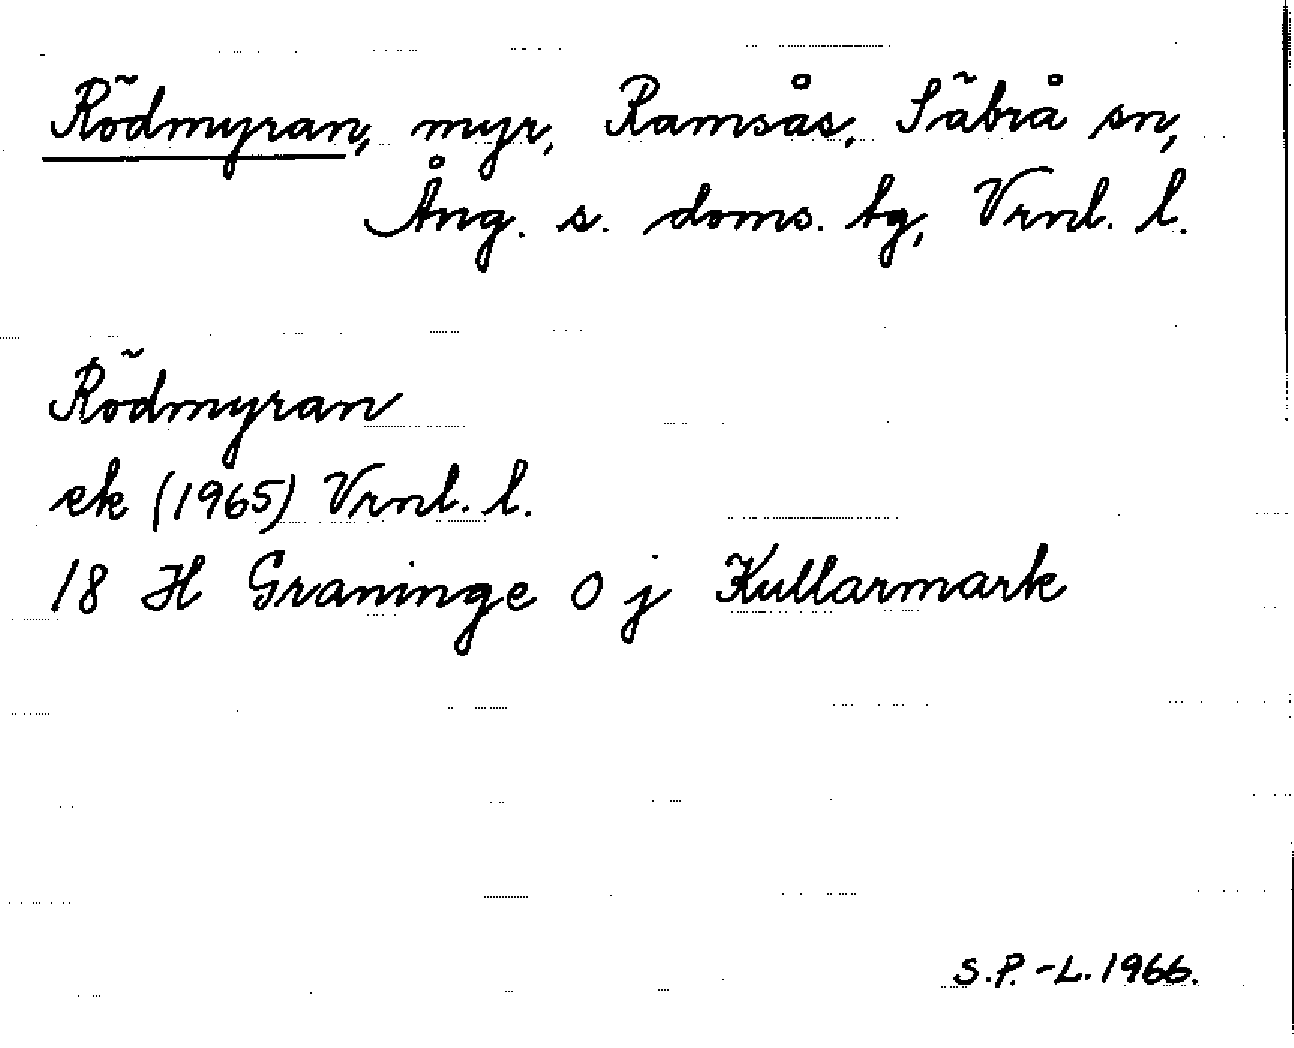 Rödmyran, myr, Ramsås, Säbrå sn,
Ång. s. doms. tg, Vrnl. l.
Rödmyran
ek (1965) Vrnl. l.
18 H Graninge 0 j Kullarmark
S.P.-L. 1966.